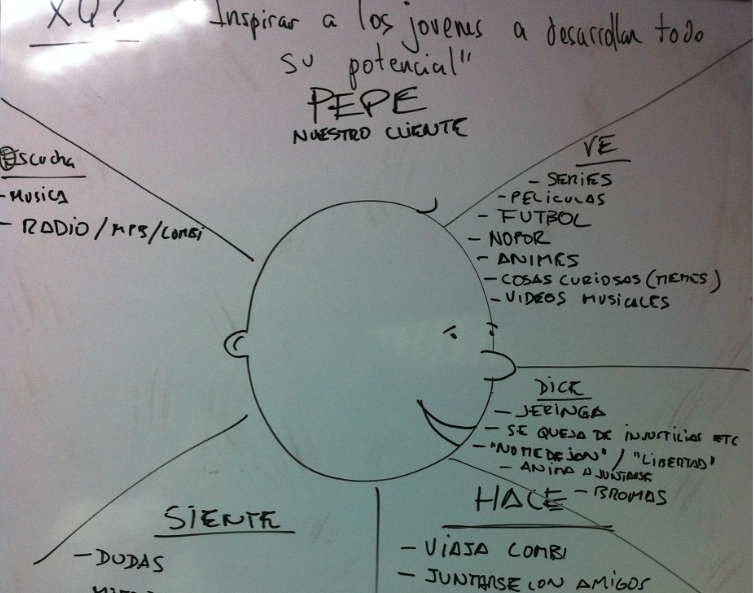 XQ? "Inspirar a los jovenes a desarrollar todo
su potencial"
PEPE
NUESTRO CLIENTE
Escucha
- MUSICA
- RADIO/MP3/COMBI
VE
- SERIES
- PELICULAS
- FUTBOL
- NOPOR
- ANIMES
- COSAS CURIOSAS (MEMES)
- VIDEOS MUSICALES
DICE
- JERINGA
- SE QUEJA DE INJUSTICIAS ETC
- "NOMEDEJAN" / "LIBERTAD"
- ANIMA A JUNTARSE
- BROMAS
SIENTE
- DUDAS
HACE
- VIAJA COMBI
- JUNTARSE CON AMIGOS